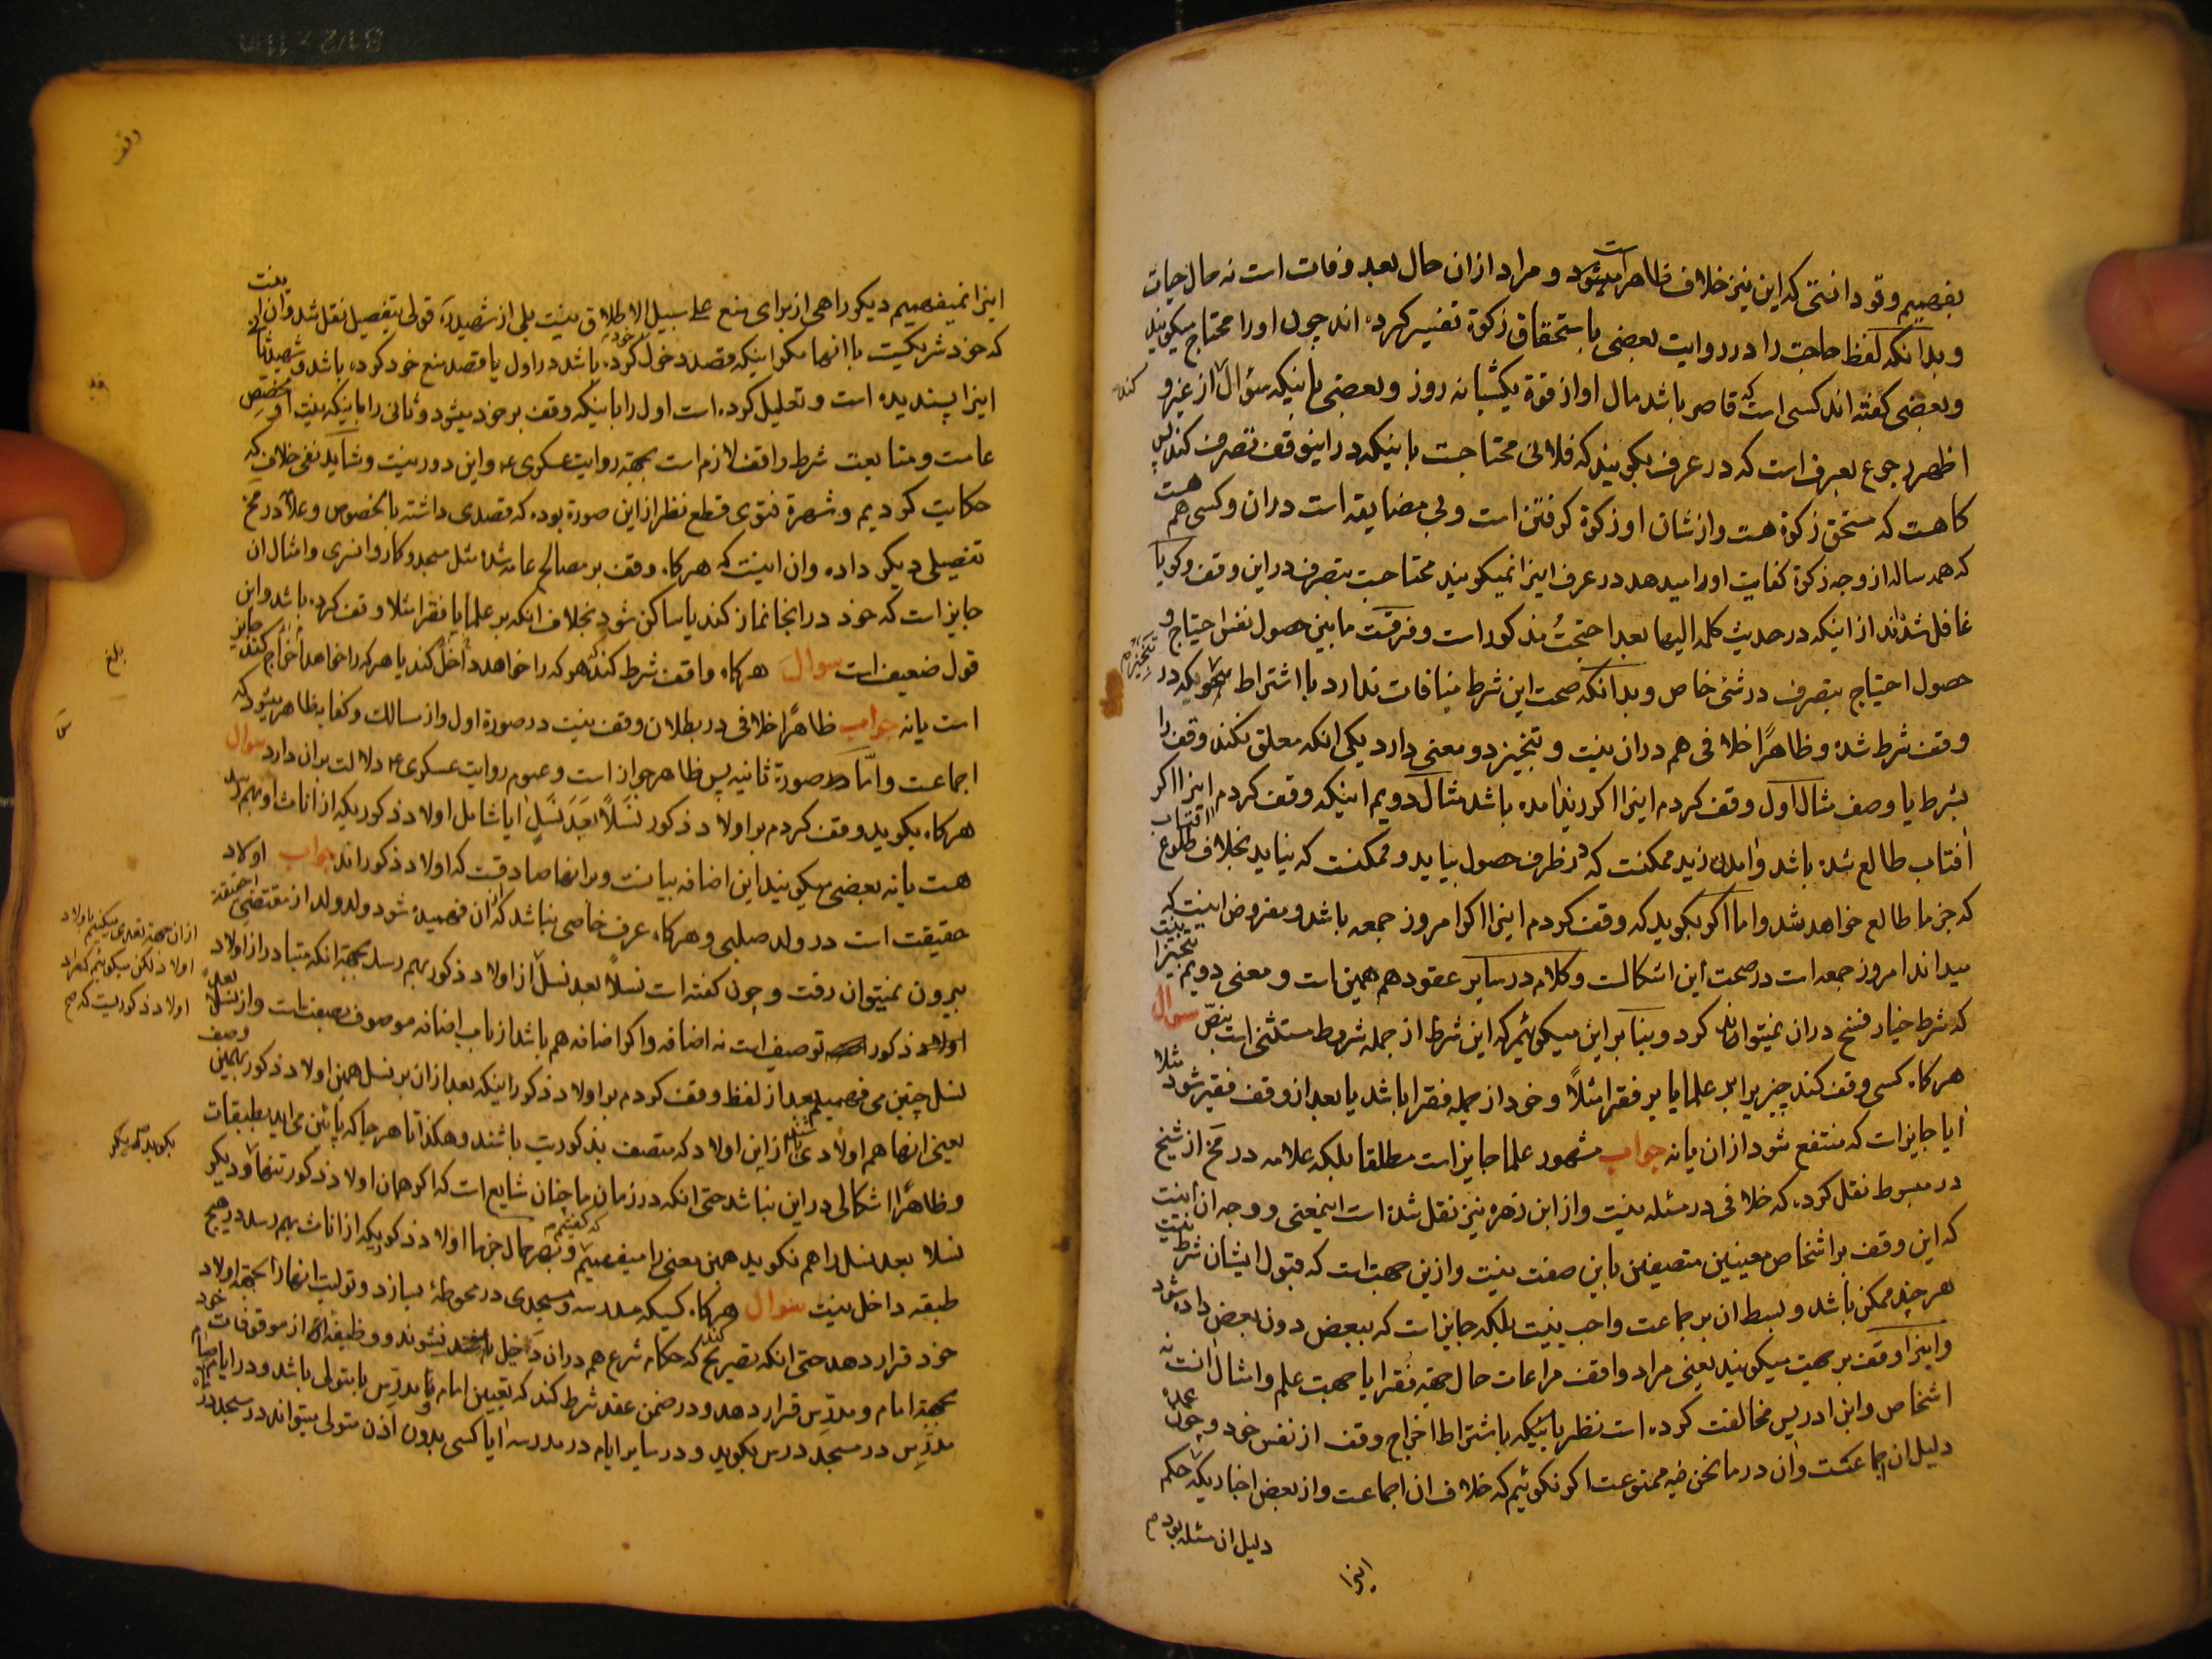 بفهمیم و تو دانستی که این نیز خلاف ظاهر است و مراد از ان حال بعد وفات است نه حال حیات
و بدانکه لفظ حاجت را در روایت بعضی باستحقاق زکوة تفسیر کرده اند چون او را محتاج میکویند
و بعضی کفته اند کسی است که قاصر باشد مال او از قوة یکشبانه روز و بعضی باینکه سؤال از غیر و
اظهر رجوع بعرف است که در عرف بکویند که فلانی محتاجست باینکه در اینوقف تصرف کند پس
کاهست که مستحق زکوة هست و از شان او زکوة کرفتن است و بی مضایقه است در ان و کسی هم هست
که همه ساله از وجه زکوة کفایت او را میدهد در عرف اینرا نمیکویند محتاجست بتصرف در این وقف و کویا
غافل شده اند از اینکه در حدیث کلمه الیها بعد احتجت مذکور است و فرقست مابین حصول نفس احتیاج و
حصول احتیاج بتصرف در شئ خاص و بدانکه صحت این شرط منافات ندارد با اشتراط تنجیزیکه در
وقف شرط شده و ظاهرًا خلافی هم در ان نیست و تنجیز دو معنی دارد یکی انکه معلق نکند وقف را
بشرط یا وصف مثال اول وقف کردم اینرا اکر زید امده باشد مثال دویم اینکه وقف کردم اینرا اکر
افتاب طالع شده باشد و امدن زید ممکنست که در ظرف حصول بیاید و ممکنست که نیاید بخلاف طلوع افتاب
که جزما طالع خواهد شد و اما اکر بکوید که وقف کردم اینرا اکر امروز جمعه باشد و مفروض اینست که
میداند امروز جمعه است در صحت این اشکالست و کلام در سایر عقود هم همین است و معنی دویم تنجیز اینست
که شرط خیار فسخ در ان نمیتواند کرد و بنا بر این میکوئیم که این شرط از جمله شروط مستثنی است بنص سوال
هرکاه کسی وقف کند چیزیرا بر علما یا بر فقرا مثلًا و خود از جمله فقرا باشد یا بعد از وقف فقیر شود مثلا
ایا جایز است که منتفع شود از ان یا نه جواب مشهور علما جایز است مطلقا بلکه علامه در مخ از شیخ
در مبسوط نقل کرده که خلافی در مسئله نیست و از ابن زهره نیز نقل شده است اینمعنی و وجه ان اینست
که این وقف بر اشخاص معینین متصفین باین صفت نیست و ازین جهت است که قبول ایشان شرط نیست
هر چند ممکن باشد و بسط ان بر جماعت واجب نیست بلکه جایز است که ببعض دون بعض داده شود
و اینرا وقف بر جهت میکویند یعنی مراد واقف مراعات حال جهة فقرا یا جهت علم و امثال انست نه
اشخاص و ابن ادریس مخالفت کرده است نظر باینکه باشتراط اخراج وقف از نفس خود و چون عمدۀ
دلیل ان اجماعست و ان در ما نحن فیه ممنوعست اکر نکوئیم که خلاف ان اجماعست و از بعض اخباریکه حکم
دلیل ان مسئله بود م
اینرا
وقف
اینرا نمیفهمیم دیکر راهی از برای منع علی سبیل الاطلاق نیست بلی از شهید ره قولی بتفصیل نقل شد و ان این است
که خود شریکست با انها مکر اینکه قصد دخول خود کرده باشد در اول یا قصد منع خود کرده باشد و شهید ثانی
اینرا پسندیده است و تعلیل کرده است اول را باینکه وقف بر خود میشود و ثانی را باینکه نیت او مخصص
عامست و متابعت شرط واقف لازم است بجهة روایت عسکری ع و این دور نیست و شاید نفی خلاف که
حکایت کردیم و شهرة فتوی قطع نظر از این صورة بوده که قصدی داشته بالخصوص و علامه در مخ
تفصیلی دیکر داده و ان اینست که هرکاه وقف بر مصالح عامه شد مثل مسجد و کاروانسری و امثال ان
جایز است که خود در انجا نماز کند یا ساکن شود بخلاف انکه بر علما یا فقرا مثلا وقف کرده باشد و این
قول ضعیف است سوال هرکاه واقف شرط کند که هرکه را خواهد داخل کند یا هرکه را خواهد اخراج کند جایز
است یا نه جواب ظاهرًا خلافی در بطلان وقف نیست در صورة اول و از مسالک و کفایه ظاهر میشود که
اجماعست و امّا صورة ثانیه پس ظاهر جواز است و عموم روایت عسکری ع دلالت بر ان دارد سوال
هرکاه بکوید وقف کردم بر اولاد ذکور نسلًا بعد نسل ایا شامل اولاد ذکوریکه از اناث او بهم رسد
هست یا نه بعضی میکویند این اضافه بیانست و بر انها صادقست که اولاد ذکور اند جواب اولاد
حقیقت است در ولد صلبی و هرکاه عرف خاصی نباشد که از ان فهمیده شود ولد ولد از مقتضی حقیقة
بیرون نمیتوان رفت و چون کفته است نسلًا بعد نسل از اولاد ذکور بهم رسد بجهة انکه متبادر از اولاد
اولاد ذکور توصیف است نه اضافه و اکر اضافه هم باشد از باب اضافه موصوف بصفت است و از نسلا بعد
نسل چنین می فهمیم بعد از لفظ وقف کردم بر اولاد ذکور اینکه بعد از ان بر نسل همین اولاد ذکور بهمین وصف
یعنی انها هم اولادی باشند از این اولاد که متصف بذکوریت باشند و هکذا تا هر جا که پائین می اید بطبقات
و ظاهرًا اشکالی در این نباشد حتی انکه در زمان ما چنان شایع است که اکر همان اولاد ذکور تنها و دیکر
نسلا بعد نسل را هم نکوید همین معنی را میفهمیم که کفتیم و بهر حال جزما اولاد ذکوریکه از اناث بهم رسد در هیچ
طبقه داخل نیست سوال هرکاه کسیکه مدرسه و مسجدی در محوطۀ بسازد و تولیت انها را بجهة اولاد
خود قرار دهد حتی انکه تصریح کند که حکام شرع هم در ان دخیل نشوند و وظیفۀ از موقوفات خود
بجهة امام و مدرّس قرار دهد و در ضمن عقد شرط کند که تعیین امام و مدرّس با متولی باشد و در ایام صیام
مدرّس در مسجد درس بکوید و در سایر ایام در مدرسه ایا کسی بدون اذن متولی میتواند در مسجد در
بلغ
از ان جهة تعدی میکنیم باولاد
اولاد لکن میکوئیم که مراد
اولاد ذکوریست که هم